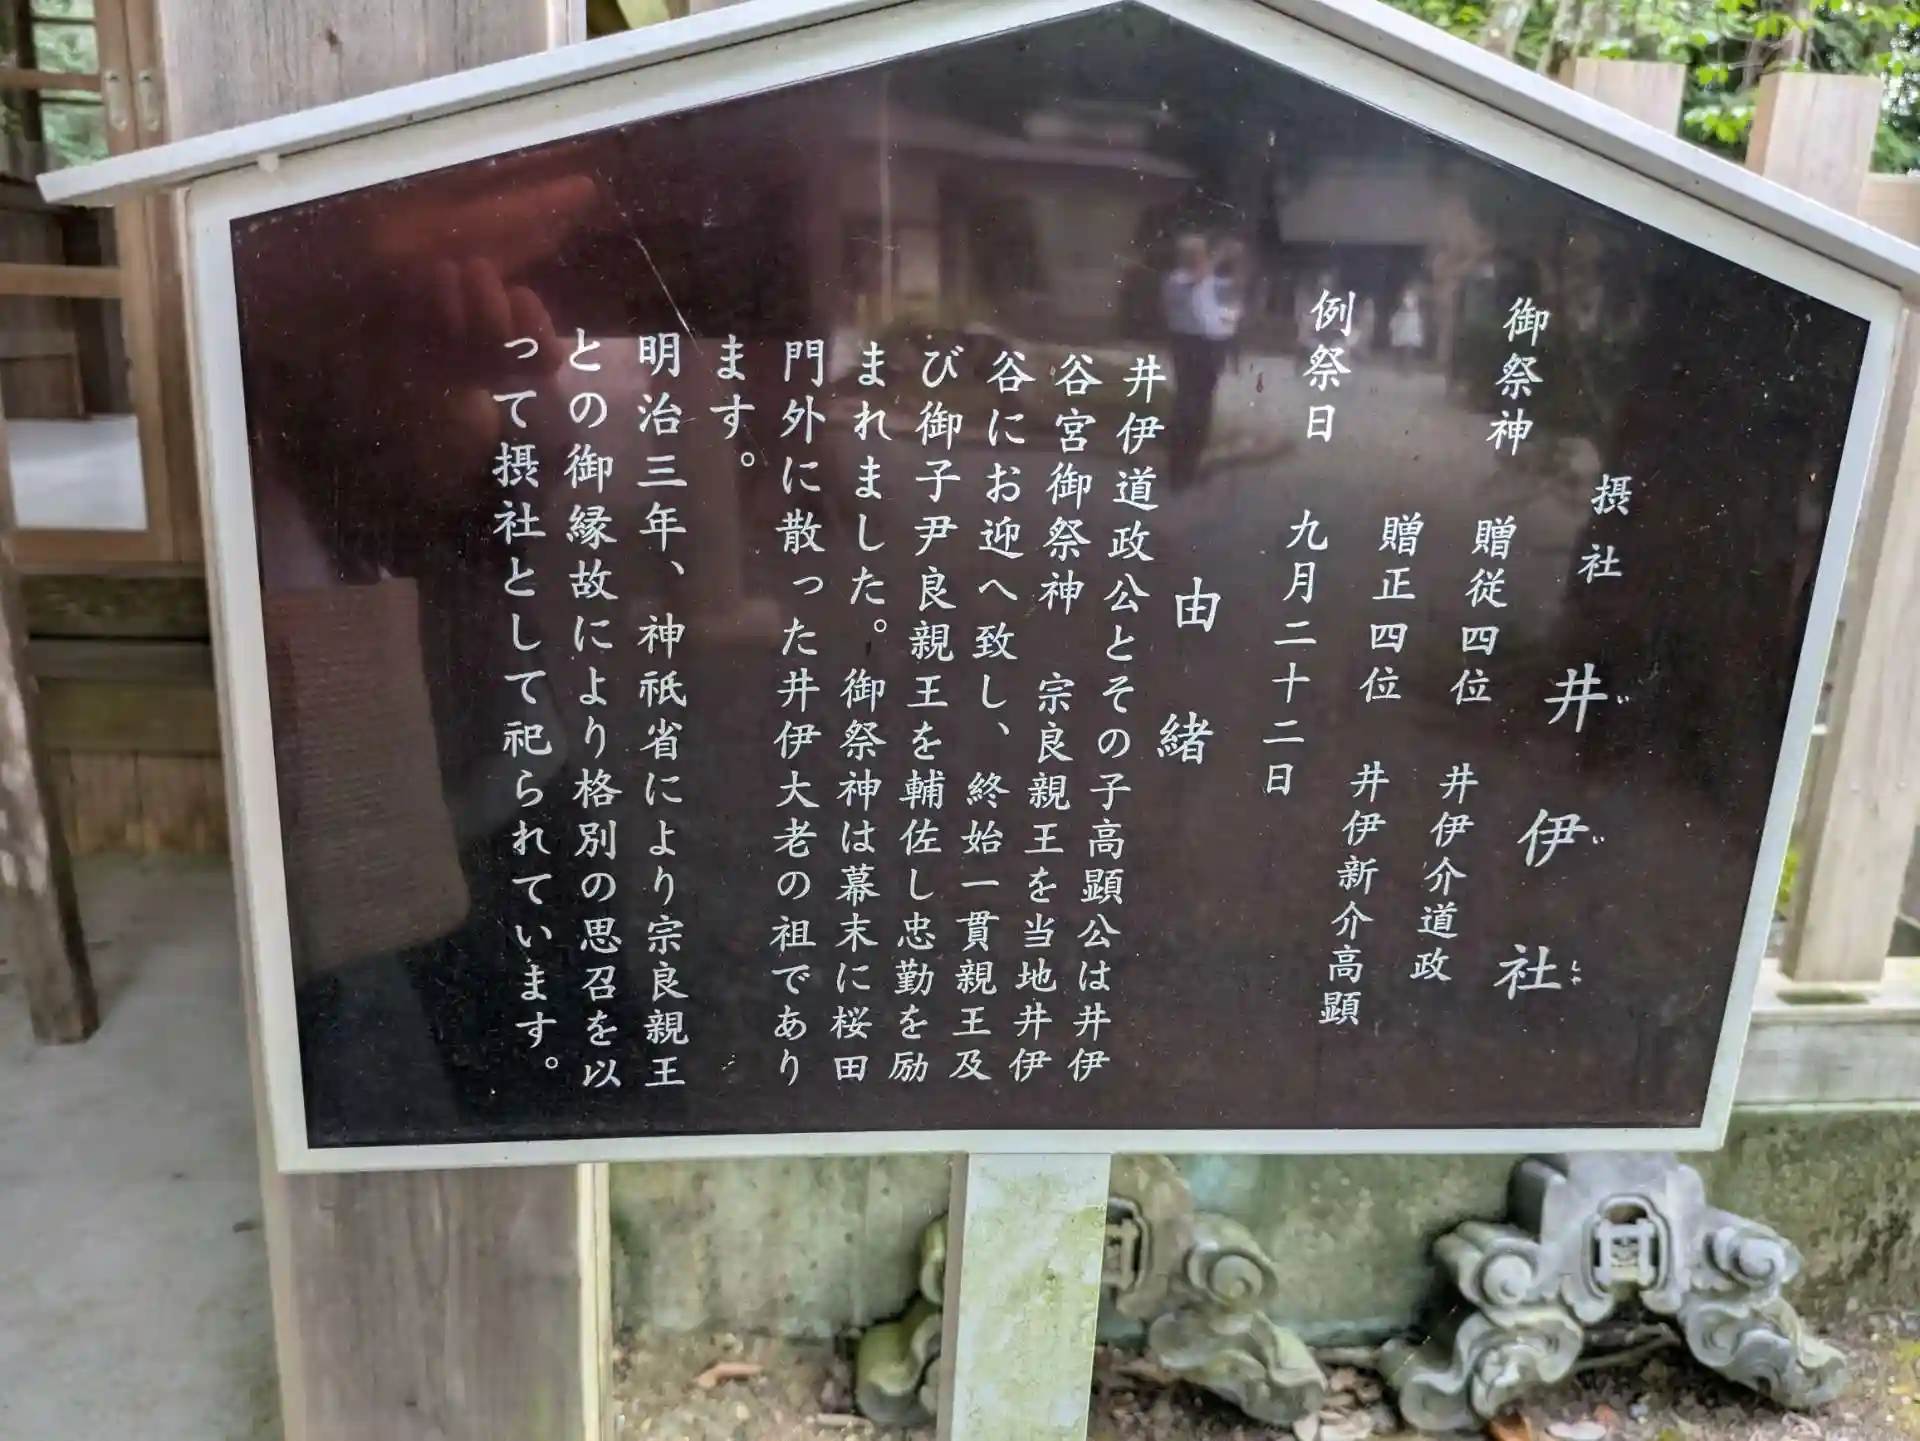 摂社 井伊社
いいしゃ
御祭神 贈従四位 井伊介道政
贈正四位 井伊新介高顕
例祭日 九月二十二日
由緒
井伊道政公とその子高顕公は井伊
谷宮御祭神 宗良親王を当地井伊
谷にお迎へ致し、終始一貫親王及
び御子尹良親王を輔佐し忠勤を励
まれました。御祭神は幕末に桜田
門外に散った井伊大老の祖であり
ます。
明治三年、神祇省により宗良親王
との御縁故により格別の思召を以
って摂社として祀られています。